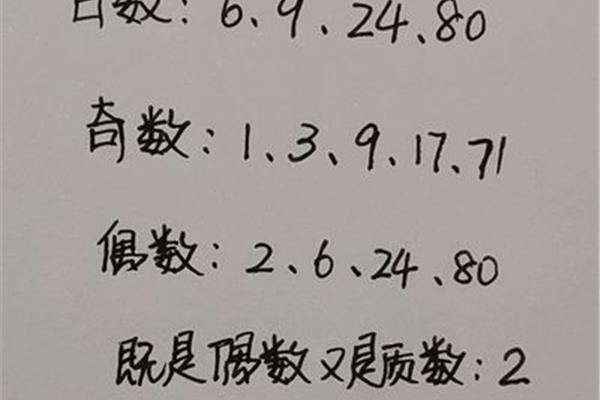 合数：6、9、24、80
奇数：1、3、9、17、71
偶数：2、6、24、80
既是偶数又是质数：2